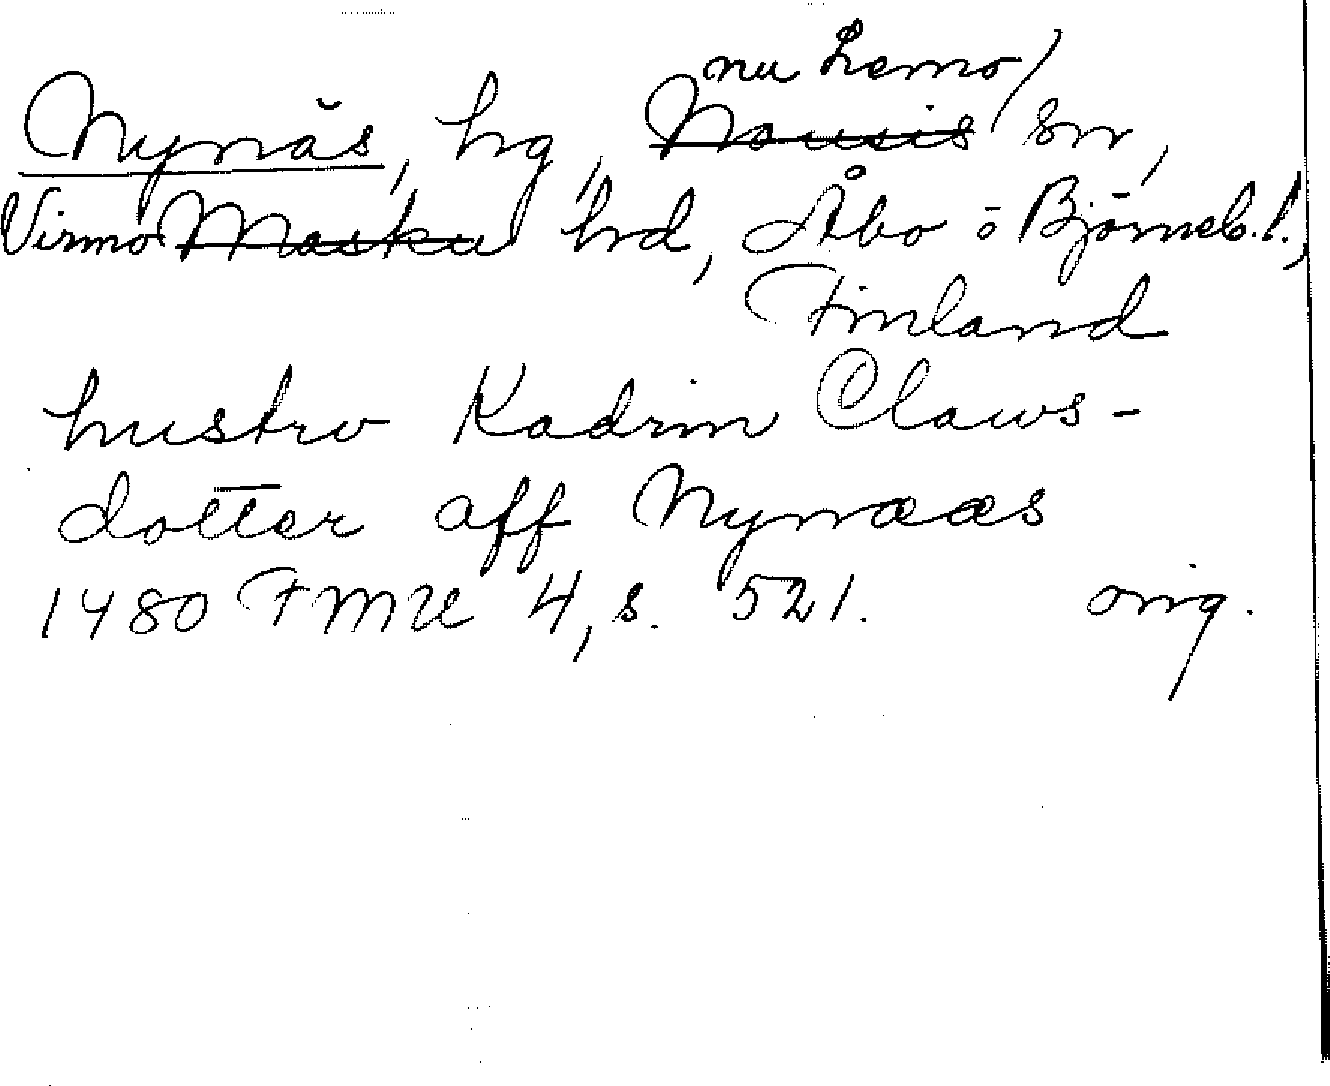 nu Lemo/
Nynäs, hg, Nousis sn,
Virmo Masku hrd, Åbo o Björneb. l.,
Finland
hustrv Kadrin Claws-
dotter aff Nynææs
1480 FMU 4, s. 521. orig.